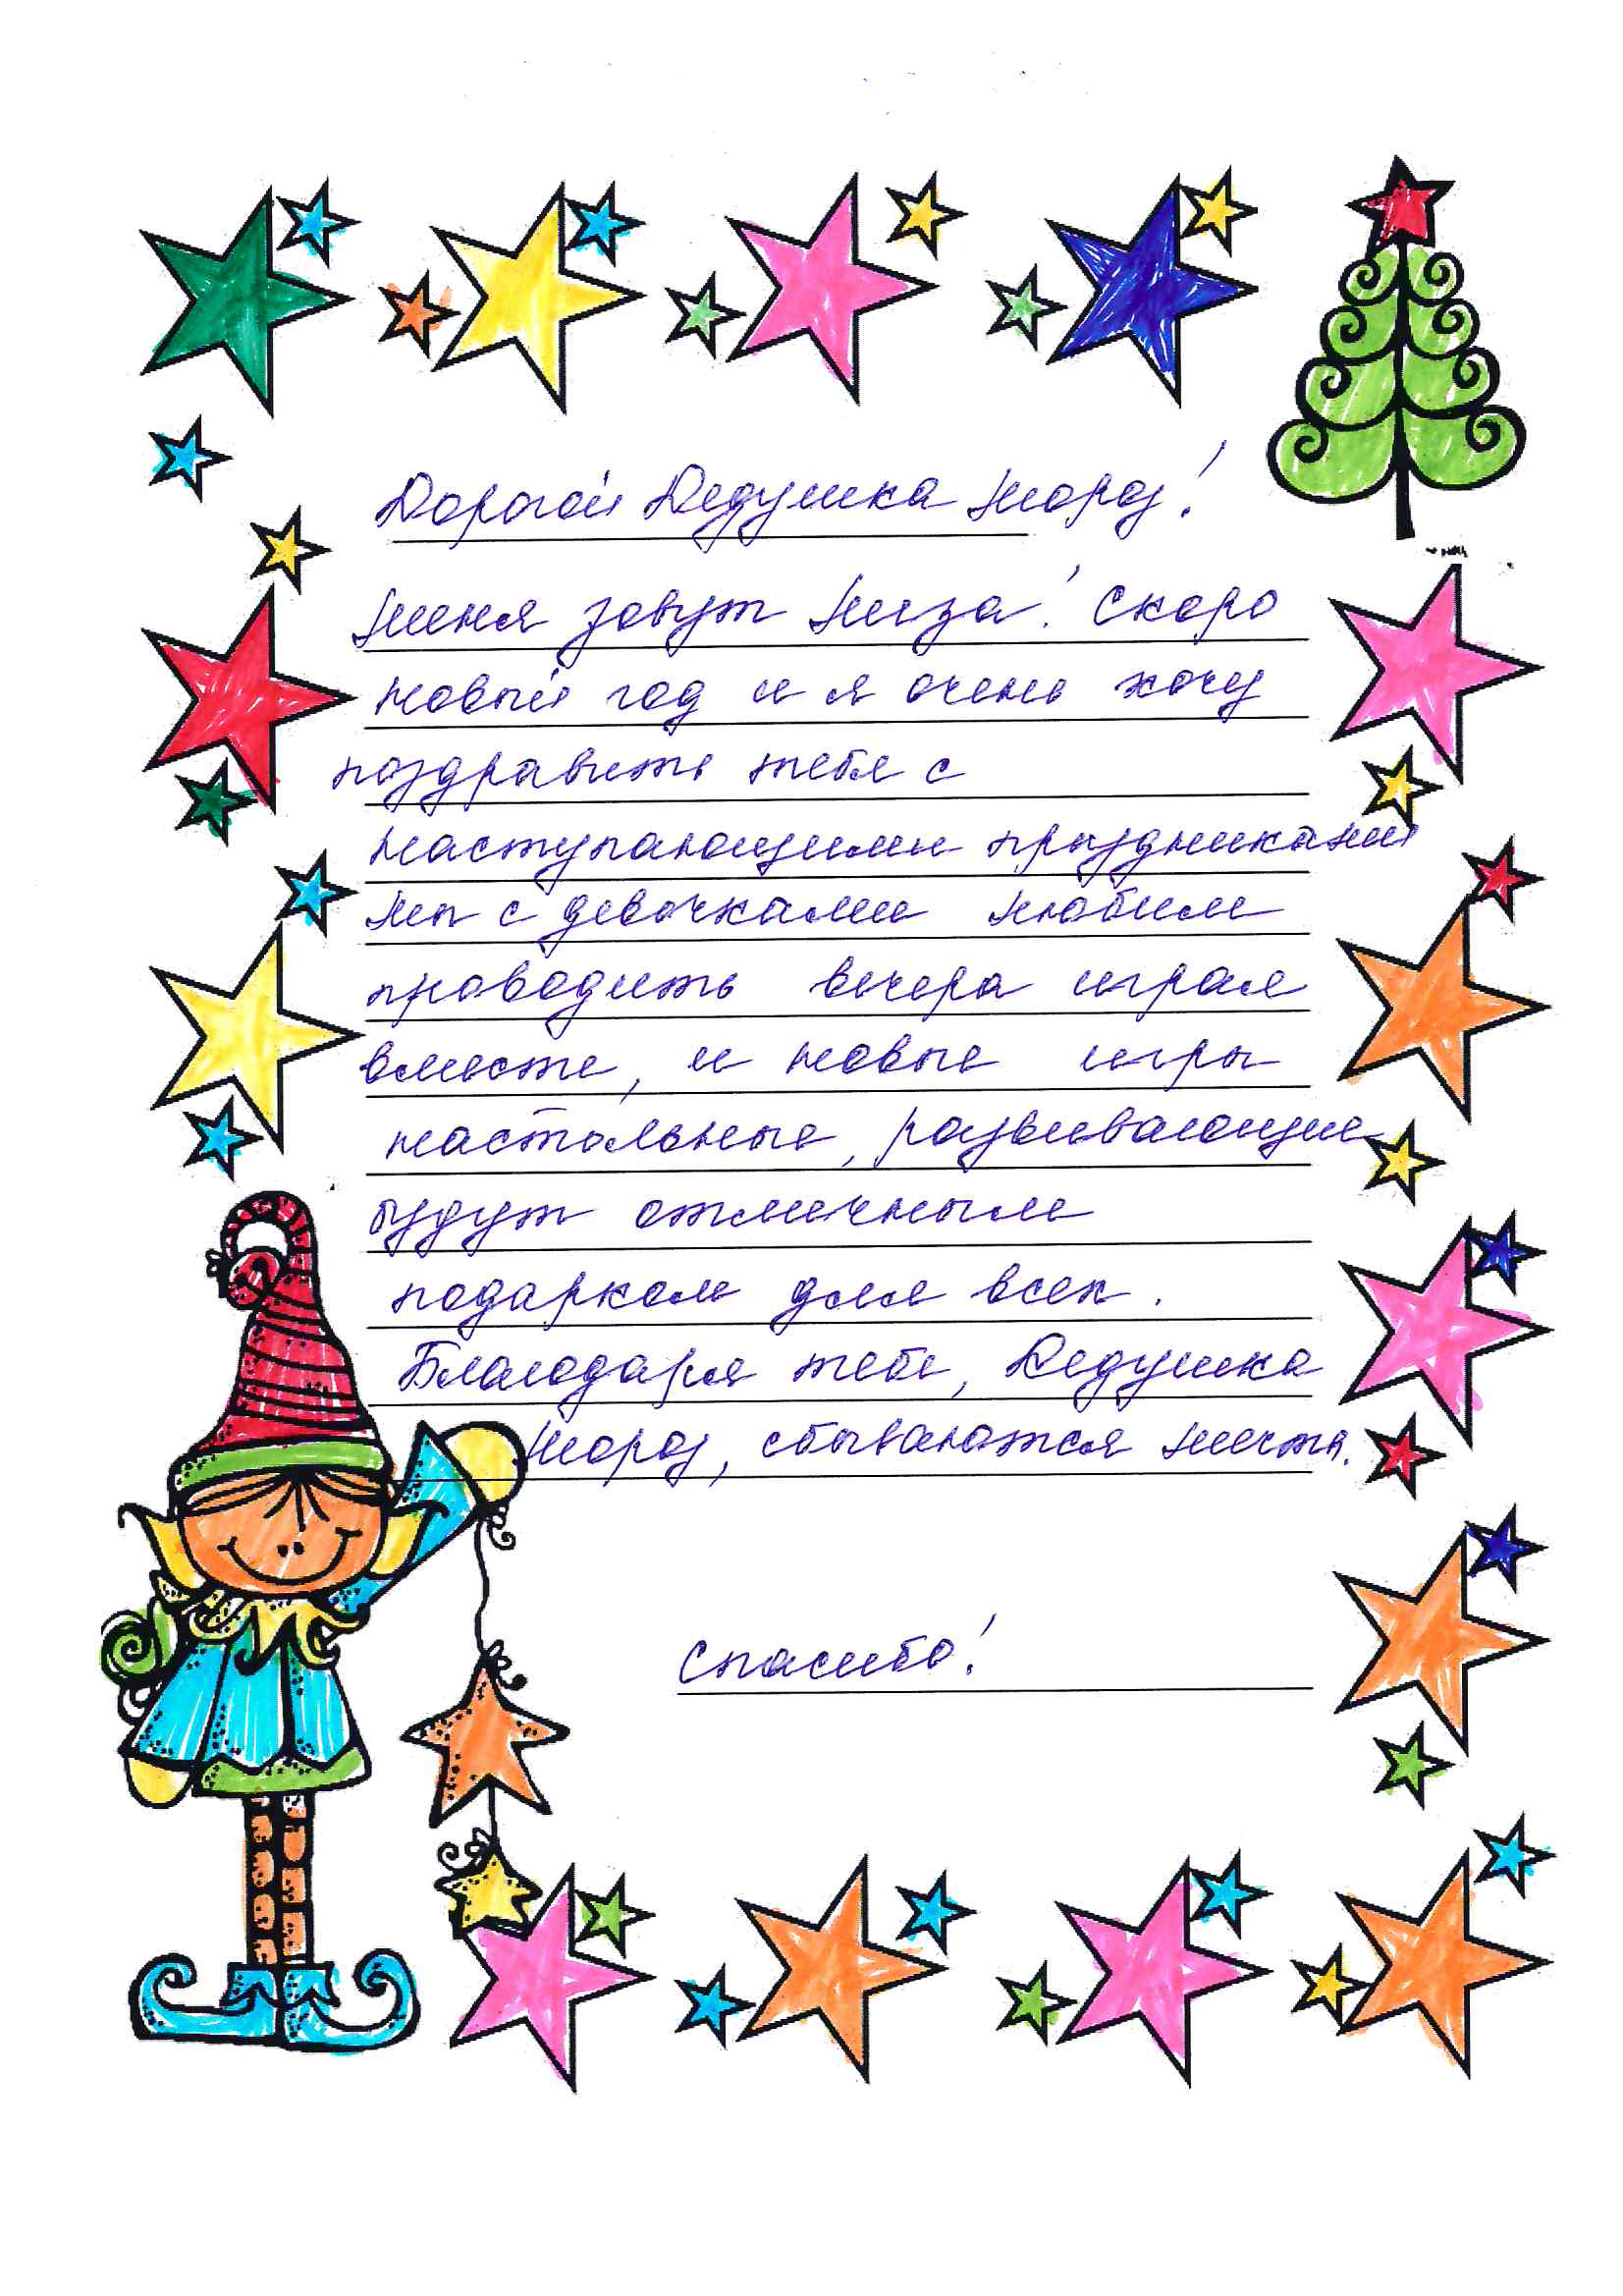 Дорогой Дедушка Мороз!
Меня зовут Лиза! Скоро
Новый год и я очень хочу
поздравить тебя с
Наступающими праздниками
Мы с девочками любим
проводить вечера играя
вместе, и новые игры
настольные, развивающие
будут отличным
подарком для всех.
Благодаря тебе, Дедушка
Мороз, сбываются мечты.
Спасибо!